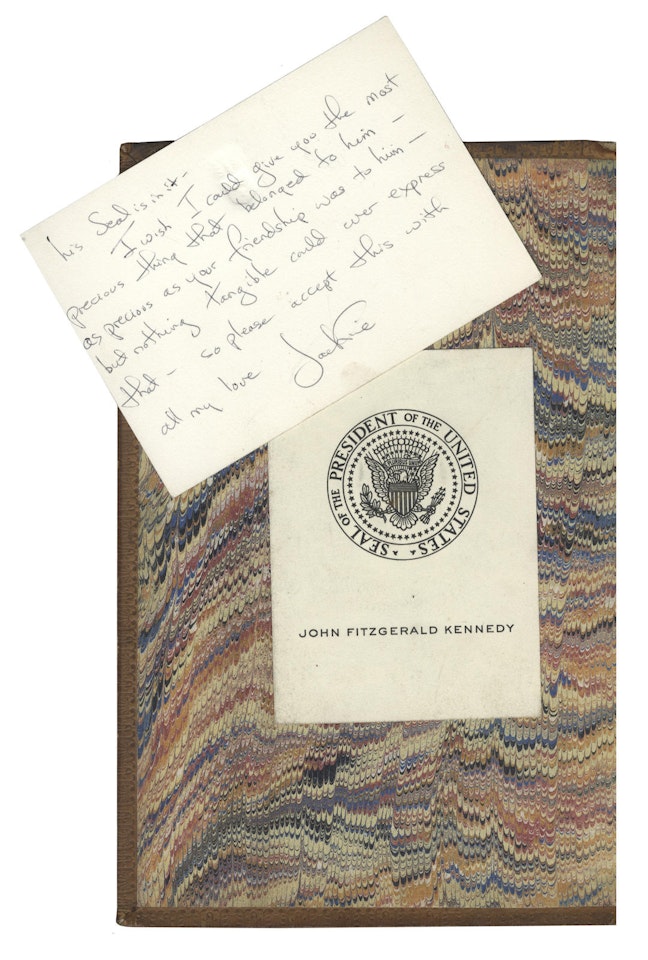 his Seal is in it -
I wish I could give you the most
precious thing that belonged to him -
as precious as your friendship was to him -
but nothing tangible could ever express
that - so please accept this with
all my love Jackie
SEAL OF THE PRESIDENT OF THE UNITED STATES
JOHN FITZGERALD KENNEDY